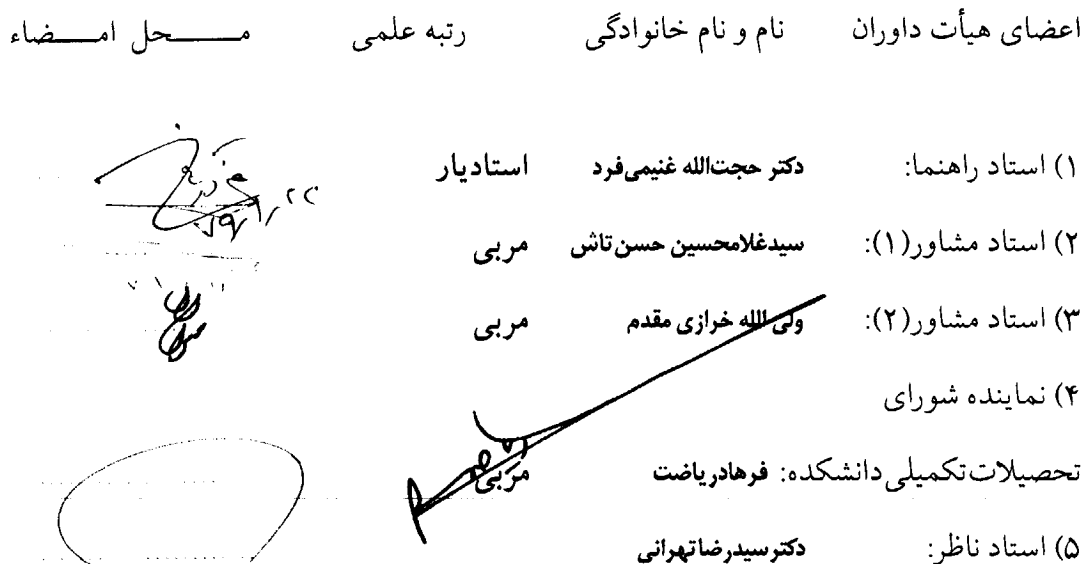 اعضای هیأت داوران نام و نام خانوادگی رتبه علمی مـــــحل امـــــضاء
۱) استاد راهنما: دکتر حجت‌الله غنیمی‌فرد استادیار
۲) استاد مشاور(۱): سیدغلامحسین حسن‌تاش مربی
۳) استاد مشاور(۲): ولی الله خرازی مقدم مربی
۴) نماینده شورای
تحصیلات تکمیلی دانشکده: فرهادریاضت مربی
۵) استاد ناظر: دکترسیدرضاتهرانی